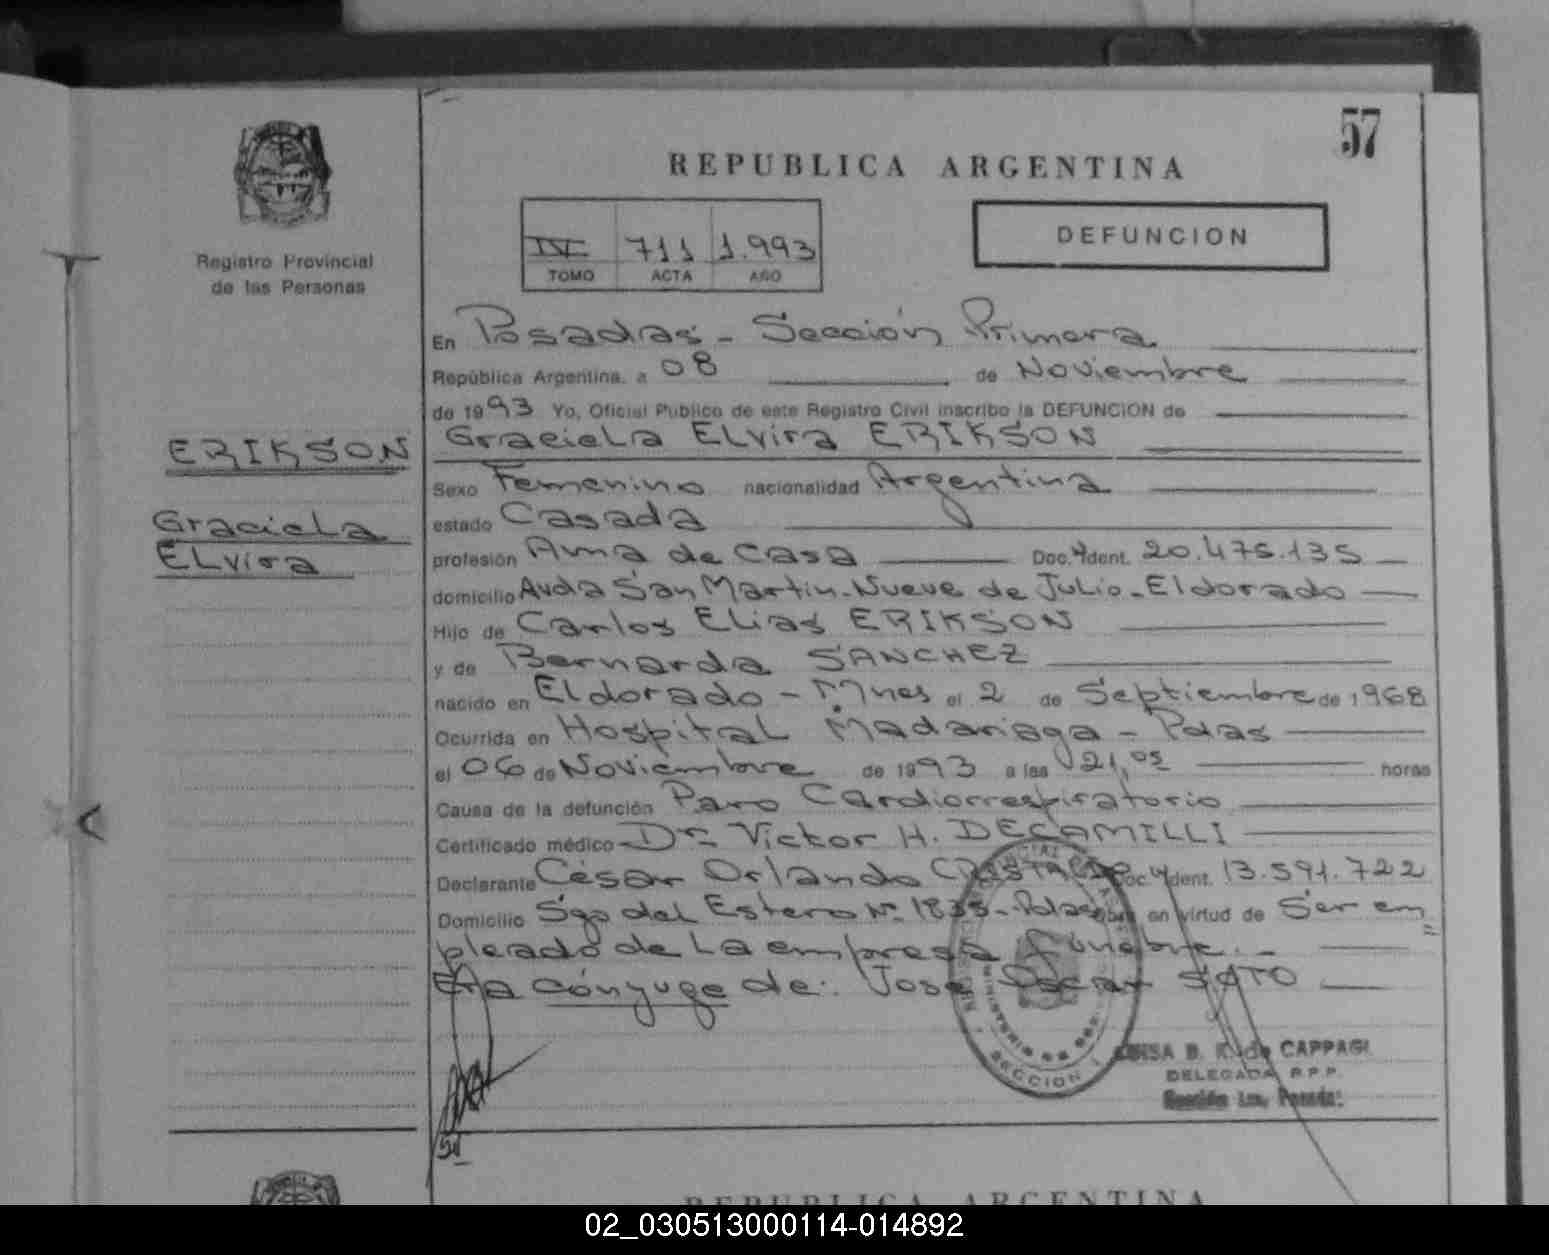 57
REPUBLICA ARGENTINA
Registro Provincial
de las Personas
IV 711 1.993
TOMO ACTA AÑO
DEFUNCION
En Posadas - Sección Primera
República Argentina, a 08 de Noviembre
de 1993 Yo, Oficial Publico de este Registro Civil inscribo la DEFUNCION de
ERIKSON
Graciela Elvira ERIKSON
Sexo Femenino nacionalidad Argentina
Graciela
estado Casada
Elvira
profesión Ama de casa Doc. Ident. 20.475.135
domicilio Avda San Martin - Nueve de Julio - Eldorado
Hijo de Carlos Elias ERIKSON
y de Bernarda SANCHEZ
nacido en Eldorado - Mnes el 2 de Septiembre de 1968
Ocurrida en Hospital Madariaga - Pdas
el 06 de Noviembre de 1993 a las 21,05 horas
Causa de la defunción Paro Cardiorrespiratorio
Certificado médico Dr. Victor H. DECAMILLI
Declarante César Orlando Doc. Ident. 13.591.722
Domicilio Sgo del Estero Nº 1835 - Pdas obra en virtud de Ser em
pleado de La empresa fúnebre. -
Era cónyuge de: José Oscar SOTO
SECCION 1
B. K. de CAPPAGLI
DELEGADA R.P.P.
Sección 1ra. Posadas
REPUBLICA ARGENTINA
02_030513000114-014892